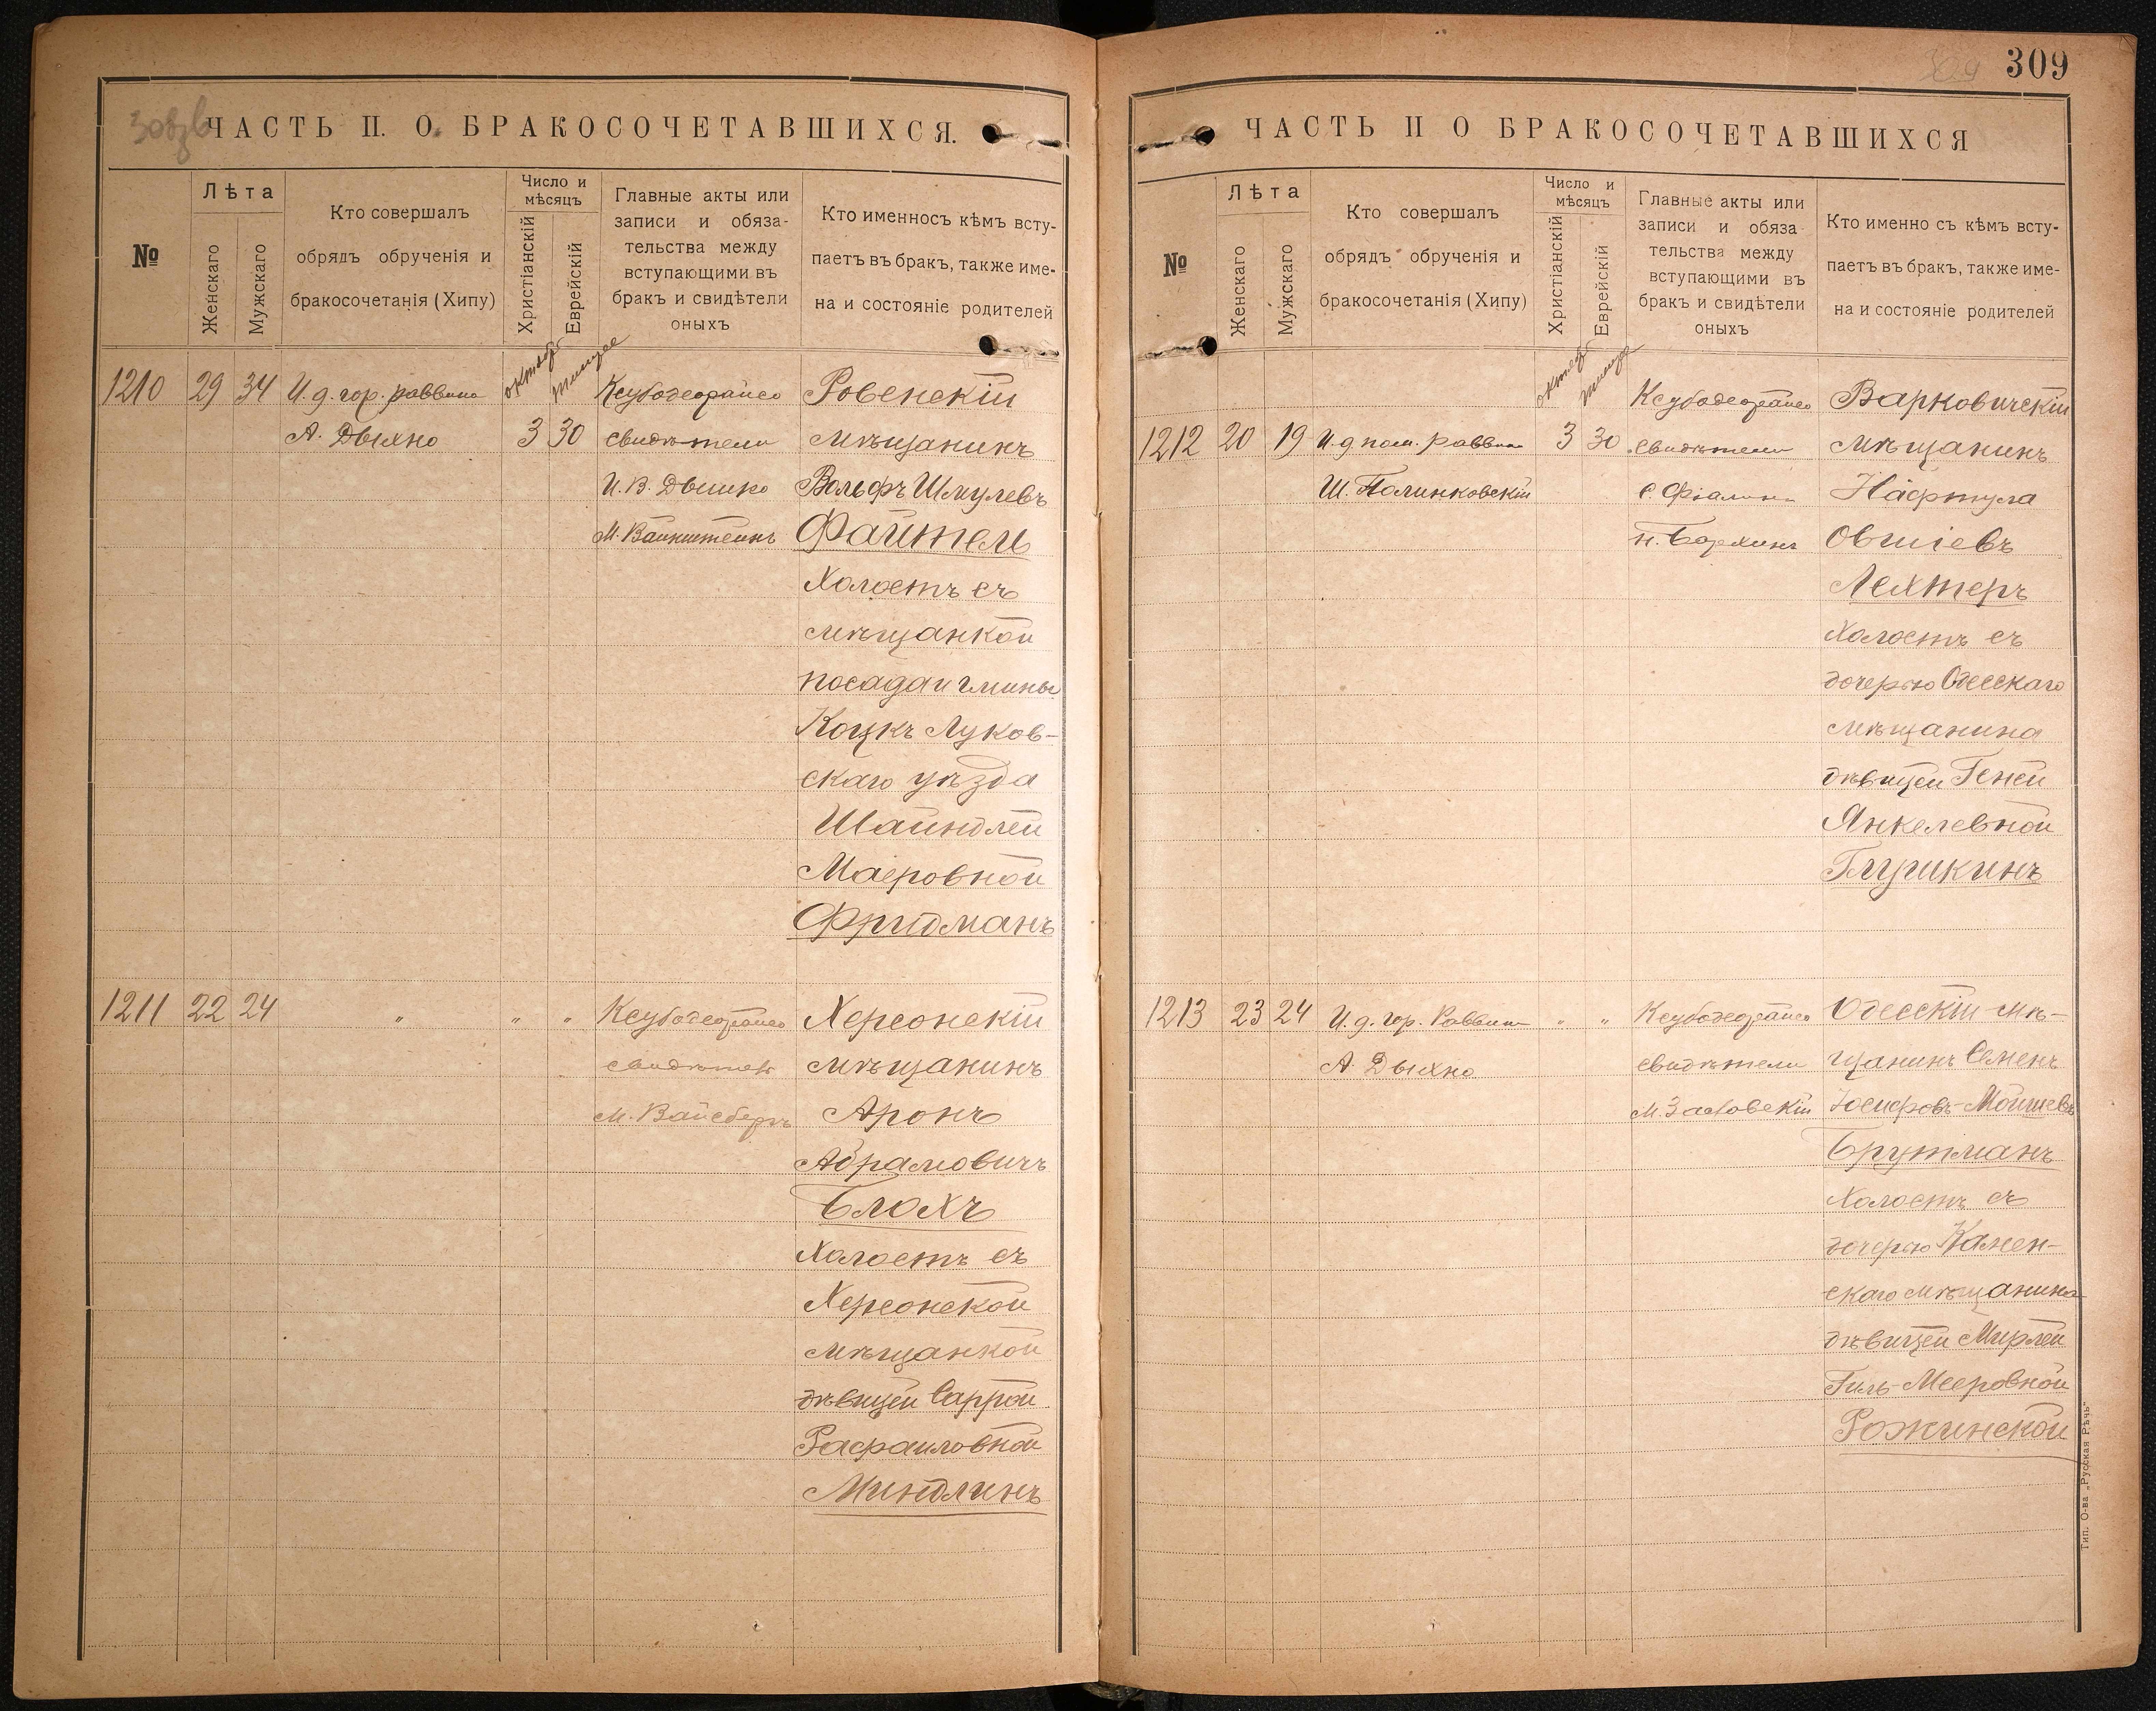 309
ЧАСТЬ II. О БРАКОСОЧЕТАВШИХСЯ.
№
Лѣта
Женскаго
Мужскаго
Кто совершалъ
обрядъ обрученія и
бракосочетанія (Хипу)
Число и
мѣсяцъ
Христіанскій
Еврейскій
Главные акты или
записи и обяза-
тельства между
вступающими въ
бракъ и свидѣтели
оныхъ
Кто именносъ кѣмъ всту-
паетъ въ бракъ, также име-
на и состояніе родителей
1210 29 34 И. д. гор. раввина
А. Дыхно
октябр
тишре
3 30
свидѣтели
М. Вайнштейнъ
Ровенскій
мѣщанинъ
Вольфъ Шмулевъ
Файтель
Холостъ съ
мѣщанкой
посада и гмины
Коцкъ Луков-
скаго уѣзда
Шайндлей
Маеровной
Фридманъ
1211 22 24 " " "
свидѣтель
М. Вайсбергъ
Херсонскій
мѣщанинъ
Аронъ
Абрамовичъ
Блохъ
Холостъ съ
Херсонской
мѣщанкой
дѣвицей Саррой
Рафаиловной
Миндлинъ
ЧАСТЬ II О БРАКОСОЧЕТАВШИХСЯ
№
Лѣта
Женскаго
Мужскаго
Кто совершалъ
обрядъ обрученія и
бракосочетанія (Хипу)
Число и
мѣсяцъ
Христіанскій
Еврейскій
Главные акты или
записи и обяза
тельства между
вступающими въ
бракъ и свидѣтели
оныхъ
Кто именно съ кѣмъ всту-
паетъ въ бракъ, также име-
на и состояніе родителей
1212 20 19 И. д. пом. раввина
Ш. Полинковскій
3 30
свидѣтели
Варковичскій
мѣщанинъ
Нафтула
Овшіевъ
Лехтеръ
Холостъ съ
дочерью Одесскаго
мѣщанина
дѣвицей Геней
Янкелевной
Глушкинъ
1213 23 24 И. д. гор. Раввина " "
А. Дыхно
свидѣтели
М. Заславскій
Одесскій мѣ-
щанинъ Семенъ
Іосифовъ-Мойшевъ
Брутманъ
Холостъ съ
дочерью Камен-
скаго мѣщанина
дѣвицей Мирлей
Гиль-Мееровной
Рожинской
Тип. О-ва „Русская Рѣчь"